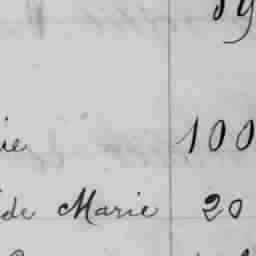 ie 100
de Marie 20